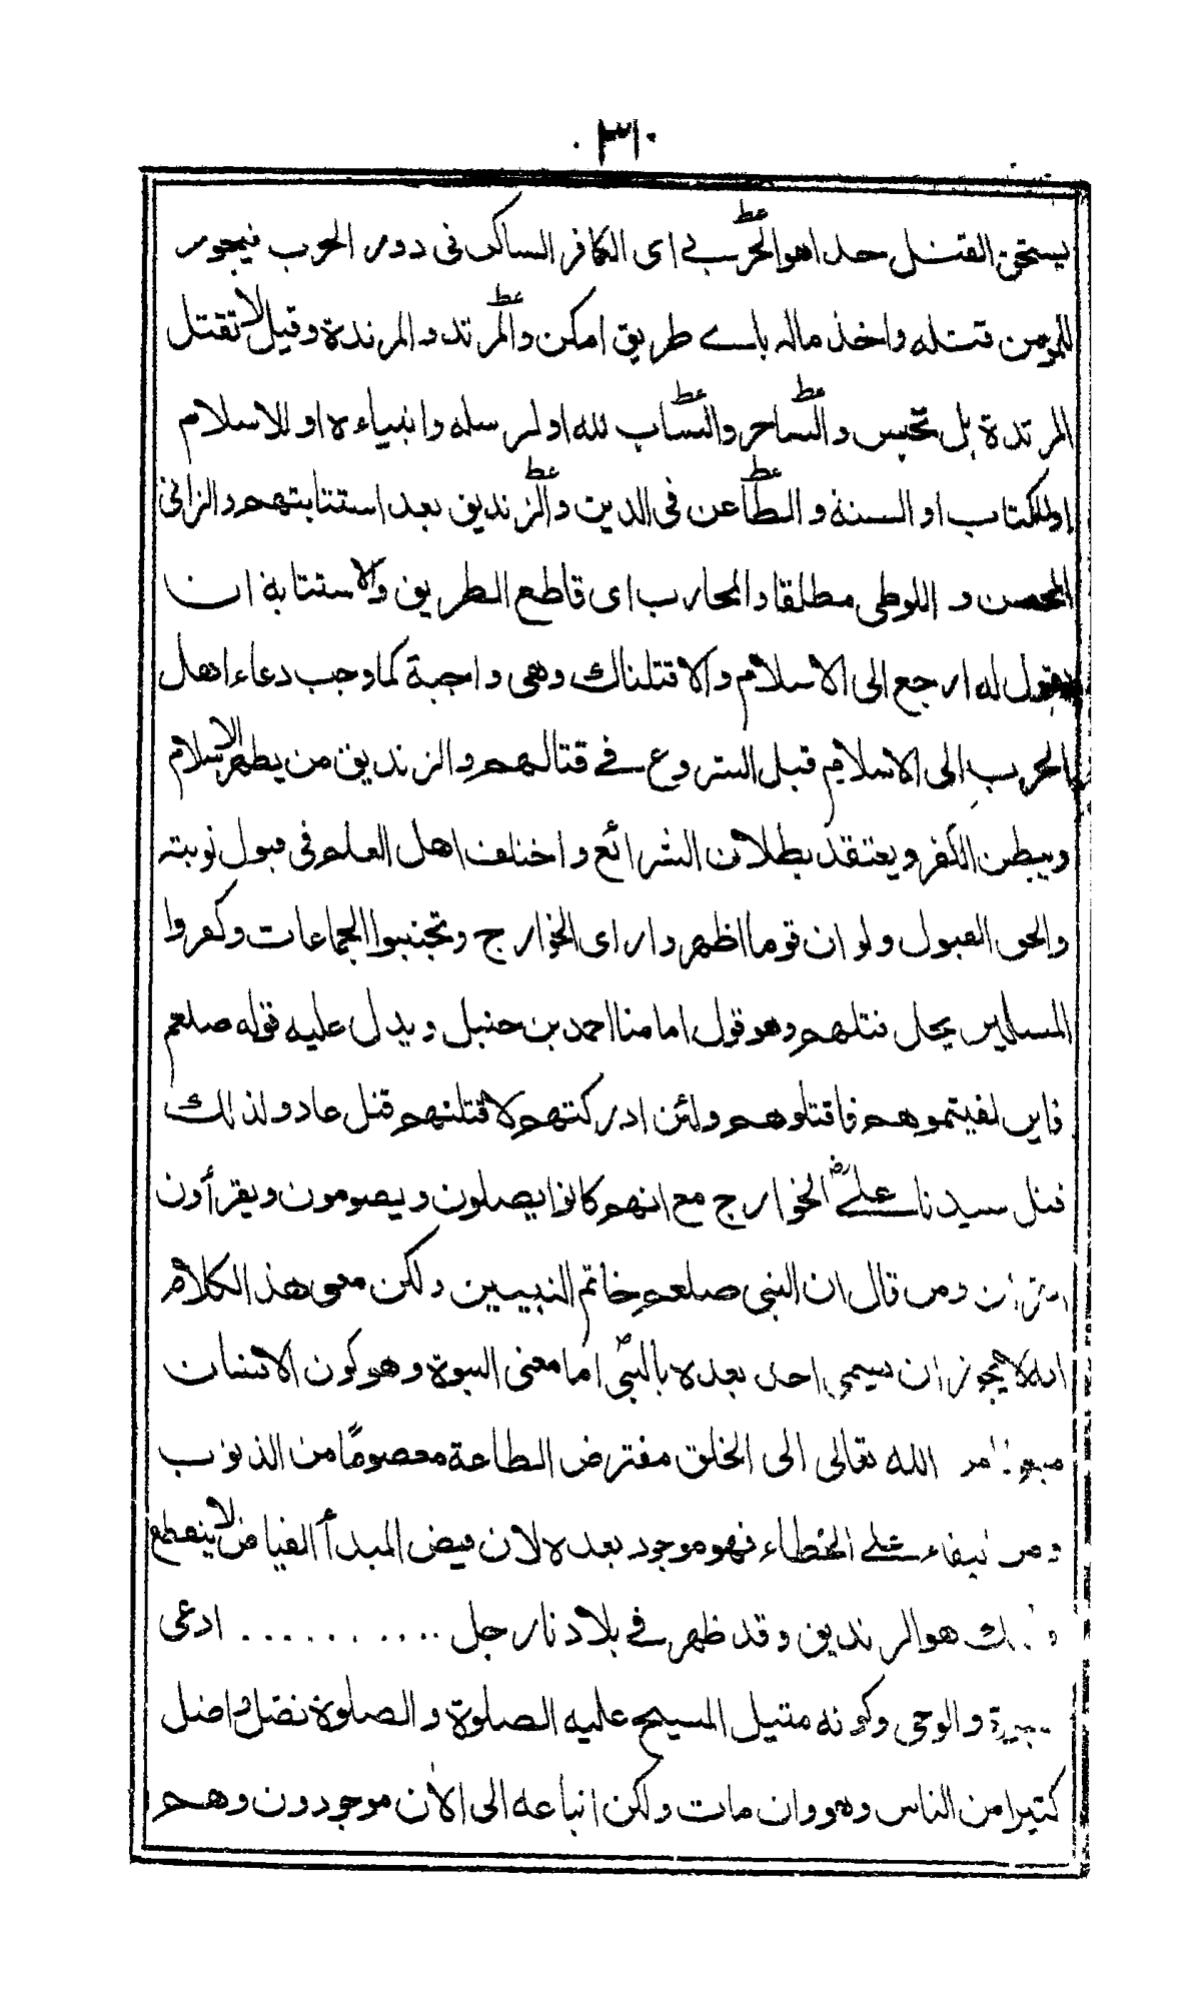 ۳۱۰
يستحق القتل حدا هو الحربي اى الكافر الساكن فى دور الحرب فيجوز
للمومن قتله واخذ ماله باے طريق امكن والمرتد والمرتدة وقيل لا تقتل
المرتدة بل تحبس والساحر والساب لله او لرسله وانبياءه او للاسلام
او للكتاب او السنة والطاعن فى الدين والزنديق بعد استتابتهم والزانى
المحصن و اللوطى مطلقا والمحارب اى قاطع الطريق والاستتابة ان
يقول له ارجع الى الاسلام والا قتلناك وهى واجبة كما وجب دعاء اهل
الحرب الى الاسلام قبل الشروع فے قتالهم والزنديق من يظهر الاسلام
ويبطن الكفر ويعتقد بطلان الشرائع واختلف اهل العلم فى قبول توبته
والحق القبول ولو ان قوما اظهروا راى الخوارج وتجنبوا الجماعات وكفروا
المسلمين يحل قتلهم وهو قول امامنا احمد بن حنبل ويدل عليه قوله صلعم
فاين لقيتموهم فاقتلوهم ولئن ادركتهم لاقتلنهم قتل عاد ولذلك
قتل سيدنا علےؓ الخوارج مع انهم كانوا يصلون ويصومون ويقرأون
ومن قال ان النبى صلعم خاتم النبيين ولكن معنى هذ الكلام
انه لا يجوز ان يسمى احد بعده بالنبى اما معنى النبوة وهو كون الانسان
مبعوثا من الله تعالى الى الخلق مفترض الطاعة معصومًا من الذنوب
ومن بقاء علے الخطاء فهو موجود بعده لان فيض المبدأ الفياض لا ينقطع
هو الزنديق وقد ظهر فے بلادنا رجل .......... ادعى
والوحى وكونه مثيل المسيح عليه الصلوة والصلوة فضل واضل
كثيرا من الناس وهو وان مات ولكن اتباعه الى الآن موجودون وهم